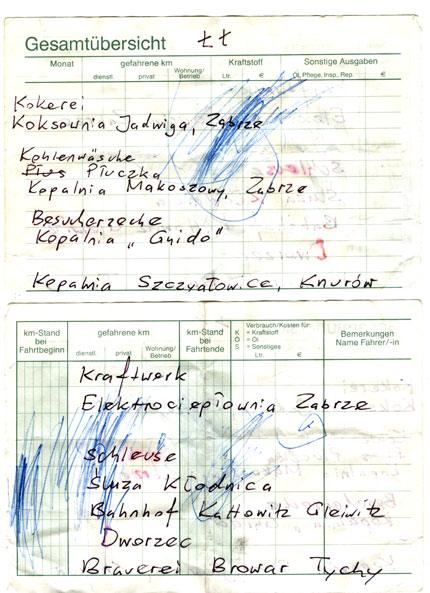 Gesamtübersicht Łł
Monat gefahrene km Kraftstoff Sonstige Ausgaben
dienstl. privat Wohnung/Betrieb Ltr. € Öl, Pflege, Insp., Rep. €
Kokerei
Koksownia Jadwiga, Zabrze
Kohlenwäsche
Płus Płuczka
Kopalnia Makoszowy, Zabrze
Besucherzeche
Kopalnia „Guido"
Kopalnia Szczygłowice, Knurów
km-Stand bei Fahrtbeginn gefahrene km km-Stand bei Fahrtende K Ö S Verbrauch/Kosten für: = Kraftstoff = Öl = Sonstiges Bemerkungen Name Fahrer/-in
dienstl. privat Wohnung/Betrieb Ltr. €
Kraftwerk
Elektrociepłownia Zabrze
Schleuse
Śluza Kłodnica
Bahnhof Kattowitz Gleiwitz
Dworzec
Brauerei Browar Tychy